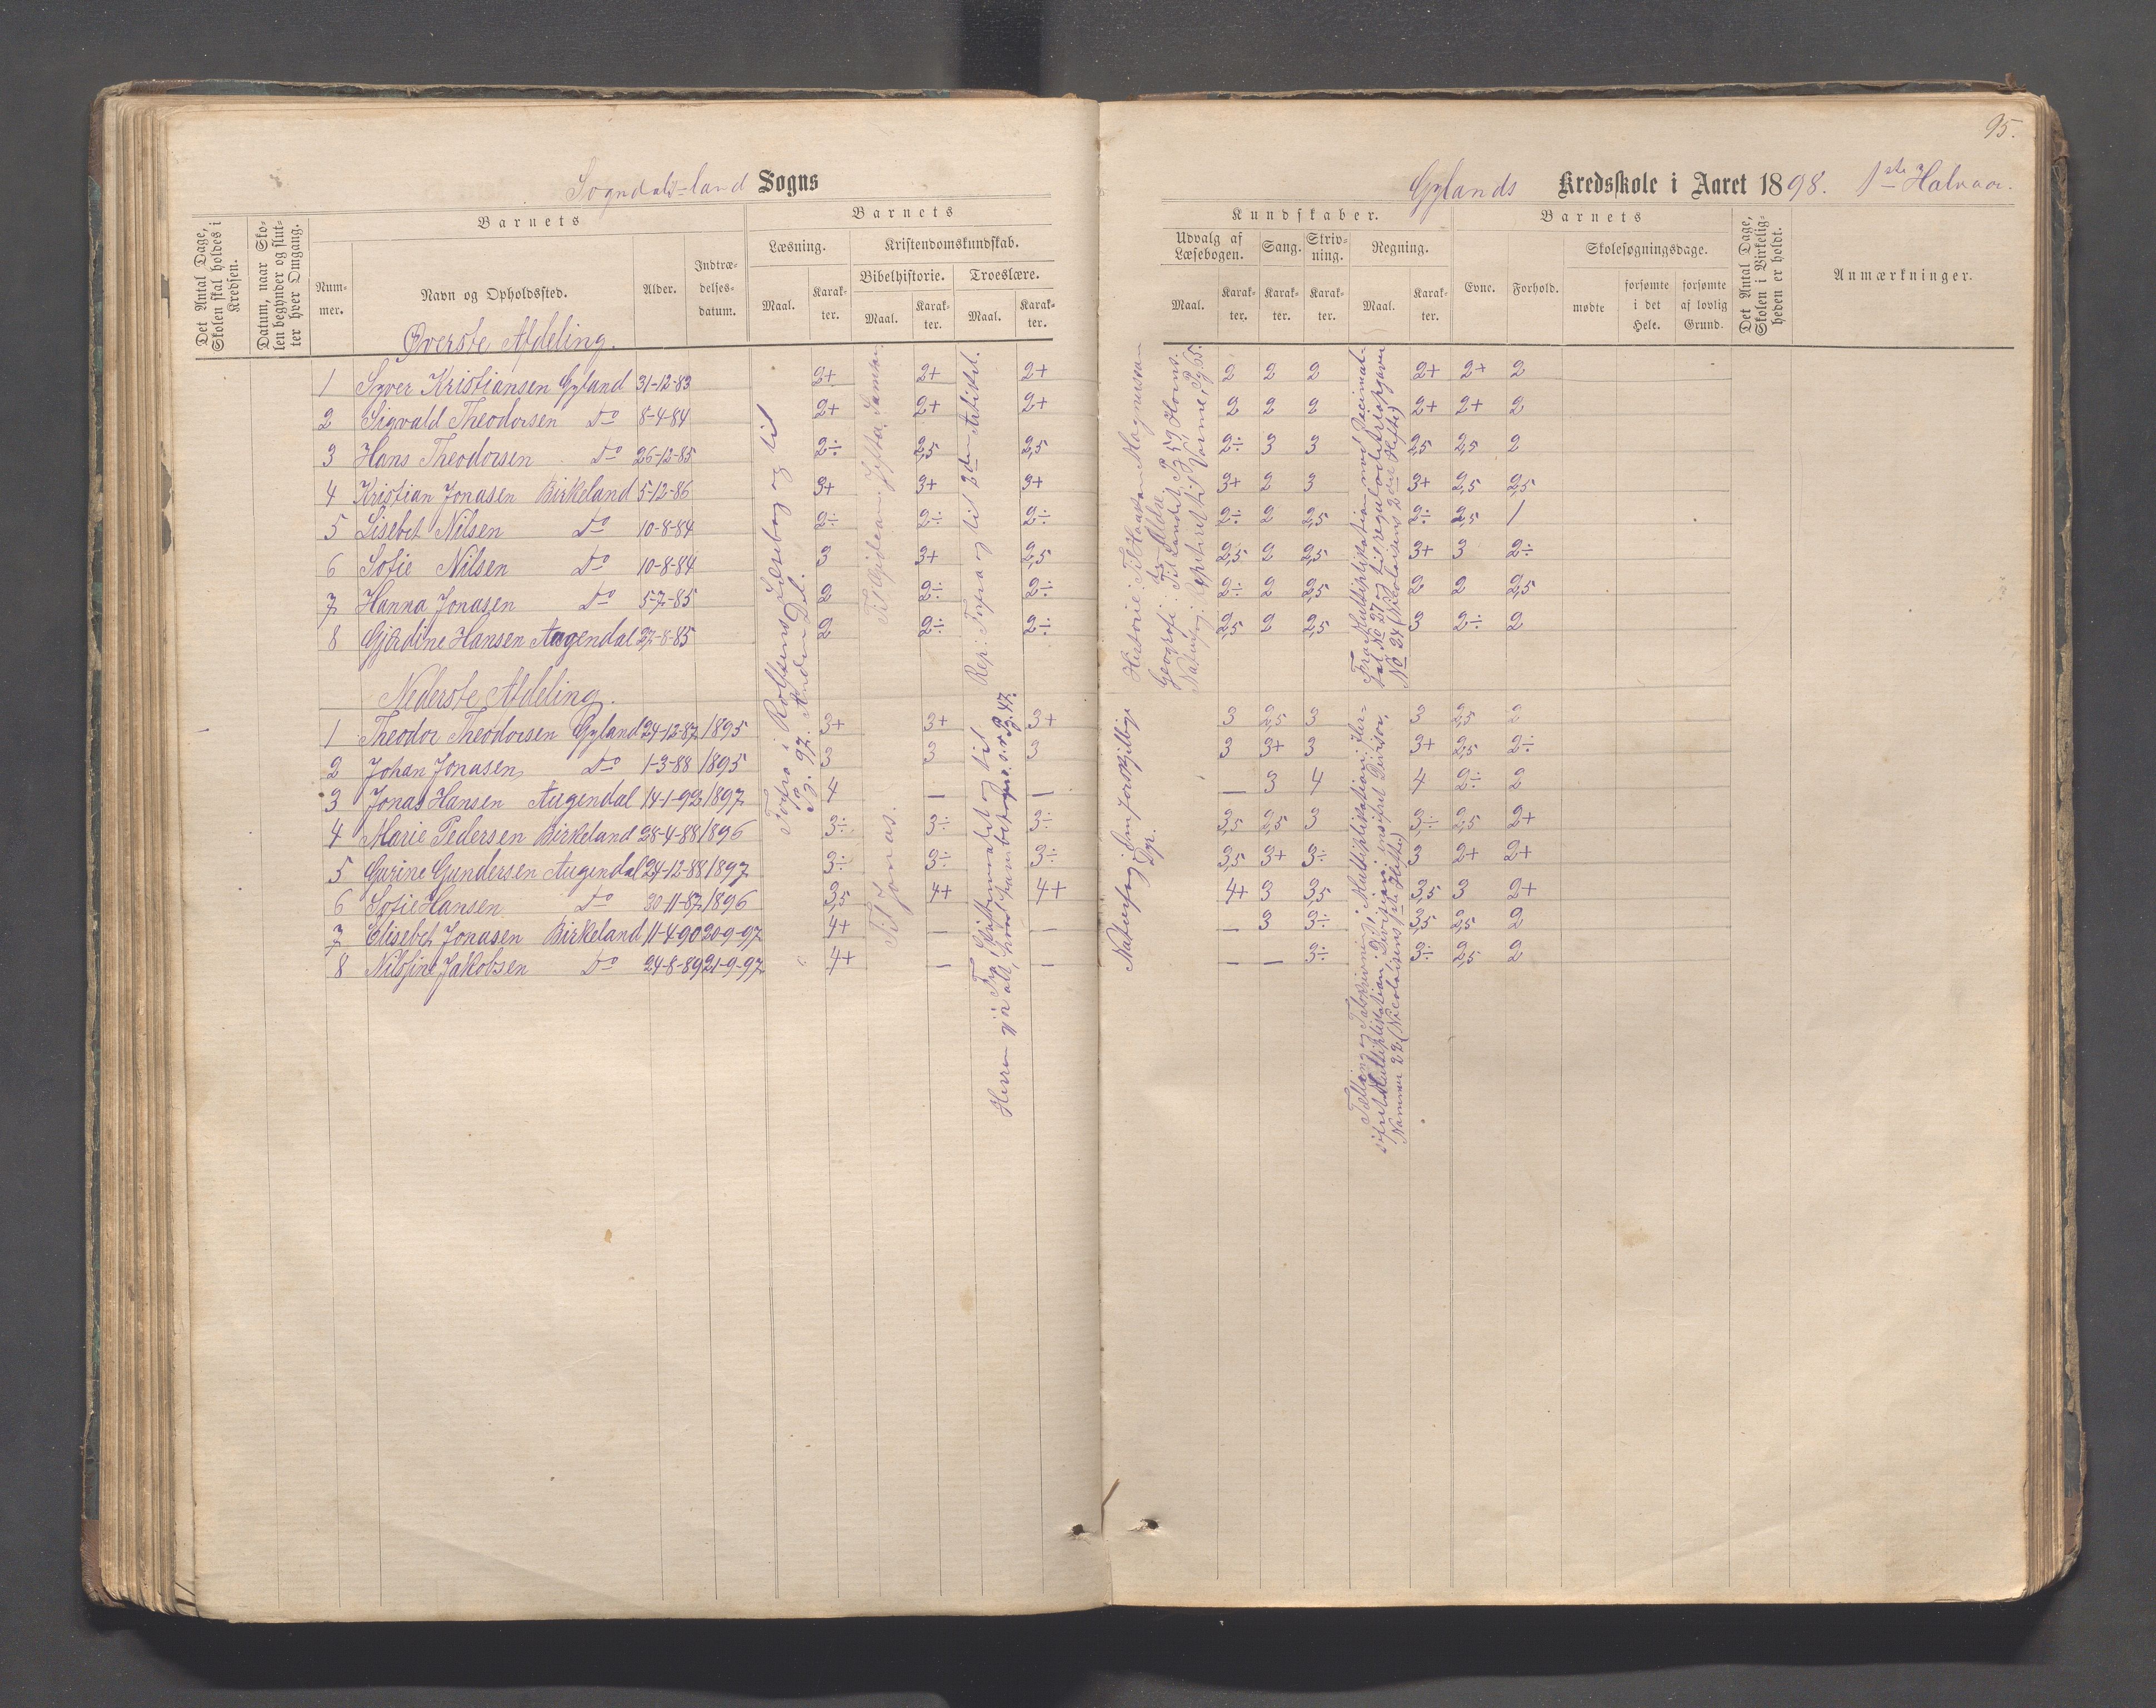 95.
Sogndals-land Sogns
Gylands Kredsskole i Aaret 1898. 1ste Halvaar.
Det Antal Dage, Skolen skal holdes i Kredsen.
Datum, naar Skolen begynder og slutter hver Omgang.
Barnets
Nummer.
Navn og Opholdssted.
Alder.
Indtrædelsesdatum.
Barnets
Læsning.
Maal.
Karakter.
Kristendomskundskab.
Bibelhistorie.
Maal.
Karakter.
Troeslære.
Maal.
Karakter.
Kundskaber.
Udvalg af Læsebogen.
Maal.
Karakter.
Sang.
Karakter.
Skrivning.
Karakter.
Regning.
Maal.
Karakter.
Barnets
Evne.
Forhold.
Skolesøgningsdage.
mødte
forsømte i det Hele.
forsømte af lovlig Grund.
Det Antal Dage, Skolen i Virkeligheden er holdt.
Anmærkninger.
Øverste Afdeling.
1 Syver Kristiansen Gyland 31-12-83 2+ 2+ 2+ 2 2 2 2+ 2+ 2
2 Sigvald Theodorsen Do 8-4-84 2+ 2+ 2+ 2 2 2 2+ 2+ 2
3 Hans Theodorsen Do 26-12-85 2÷ 2,5 2,5 2÷ 3 3 2,5 2,5 2
4 Kristian Jonasen Birkeland 5-12-86 3+ 3+ 3+ 3+ 2 3 3+ 2,5 2,5
5 Lisebet Nilsen Do 10-8-84 2÷ 2÷ 2÷ 2÷ 2 2,5 2÷ 2,5 /
6 Sofie Nilsen Do 10-8-84 3 3+ 2,5 2,5 2 2,5 3+ 3 2÷
7 Hanna Jonasen Do 5-7-85 2 2÷ 2÷ 2÷ 2 2,5 2 2 2,5
8 Gjærdine Hansen Augendal 27-8-85 2 2÷ 2÷ 2,5 2 2,5 3 2÷ 2
Nederste Afdeling.
1 Theodor Theodorsen Gyland 24-12-87 1895 3+ 3+ 3+ 3 2,5 3 3 2,5 2
2 Johan Jonasen Do 1-3-88 1895 3 3 3 3 3+ 3 3+ 2,5 2÷
3 Jonas Hansen Augendal 14-1-92 1897 4 — — — 3 4 4 2÷ 2
4 Marie Pedersen Birkeland 28-4-88 1896 3÷ 3÷ 3÷ 3,5 2,5 3 3÷ 2,5 2+
5 Gurine Gundersen Augendal 24-12-88 1897 3÷ 3÷ 3÷ 3,5 3+ 3÷ 3 2+ 2+
6 Sofie Hansen Do 20-11-87 1896 3,5 4+ 4+ 4+ 3 3,5 3,5 3 2+
7 Elisebet Jonasen Birkeland 11-4-90 20-9-97 4+ — — — 3 3÷ 3,5 2,5 2
8 Nilsine Jakobsen Do 24-8-89 21-9-97 4+ — — — — 3÷ 3÷ 2,5 2
Forfra i Rolfsens Læsebog og til
Pg. 97. Anden Del.
Til Gideon. Jefta. Samson.
Til Jonas.
Rep. Forfra og til 2den Artikel.
Historie: Til Haakon Magnussøn
den Ældre
Geografi: Til Landet Pg 59 Horns.
Naturfag: Repetiret til Varme, Pg 65.
Naturfag: Jensforskjellige
Dyr.
Fra Multiplikation med Decimal-
tal No 27 og til reguladetriopgaver
No 24 (Nicolaisens 2det Hefte)
Tælling og Talskrivning; Multiplikation; fler-
sifret Multiplikation; Division; ensifret Divisor.
Nummer 22 (Nicolaisens 1ste Hefte)